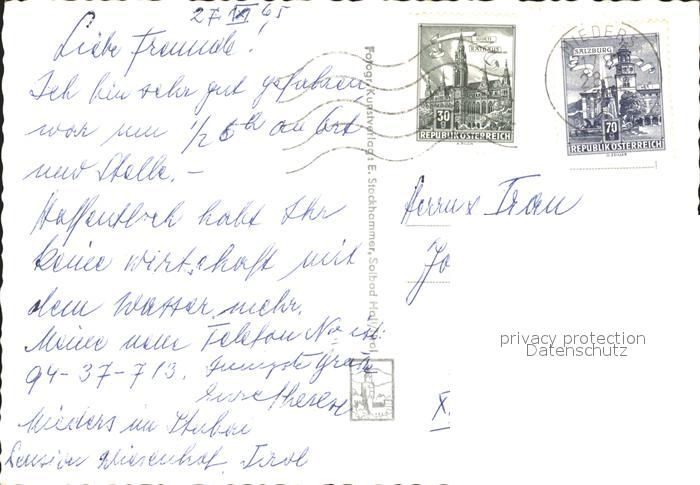 27 65
Liebe Freunde!
Ich bin sehr gut gefahren,
war um 1/2 6h an Ort
und Stelle. -
Hoffentlich habt Ihr
keine wirtschaft mit
dem Wasser mehr.
Meine neue Telefon No ist:
94-37-713.
Eure Therese
Mieders im Stubai
Pension Wiesenhof Tirol
Fotogr. Kunstverlag: E. Stockhammer, Solbad Hall/Tirol
WIEN
RATHAUS
30
REPUBLIK ÖSTERREICH
MIEDER
SALZBURG
70
REPUBLIK ÖSTERREICH
Herrn u Frau
Jo
privacy protection
Datenschutz
X.